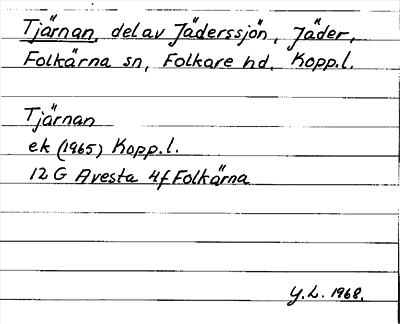 Tjärnan, del av Jäderssjön, Jäder,
Folkärna sn, Folkare hd, Kopp.l.
Tjärnan
ek (1965) Kopp.l.
12 G Avesta 4f Folkärna
Y.L. 1968.